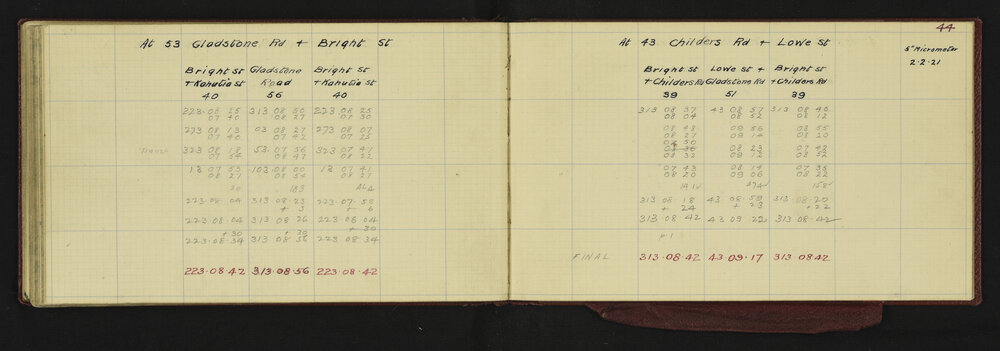 At 53 Gladstone Rd + Bright St
Bright St Gladstone Bright St
+ Kahutia St Road + Kahutia St
40 56 40
223·08 25 313 08 50 223 08 25
07 40 08 27 07 30
273 08 13 03 08 27 273 08 07
07 40 07 42 07 25
323 08 18 53·07 56 323 07 47
07 54 08 47 08 22
13 07 53 103·08 00 13 07 41
08 27 08 54 08 27
20 183
223·08 04 313 08 23 223·07 58
+ 3 + 6
223·08·04 313 08 26 223 08 04
+30 + 30 + 30
223·08·34 313 08 56 223 08 34
223·08·42 313·08·56 223·08·42
44
At 43 Childers Rd + Lowe St
5" Micrometer
2·2·21
Bright St Lowe St + Bright St
+ Childers Rd Gladstone Rd + Childers Rd
39 51 39
313 08 37 43 08 57 313 08 40
08 04 08 52 08 12
08 48 09 56 08 55
08 27 09 14 08 20
50
08 23 07 42
08 32 09 12 08 52
07 43 08 14 07 35
08 20 09 06 08 22
141 274 158
313 08 18 43 08 59 313·08·20
+ 24 + 23 + 22
313 08 42 43 09·22 313·08·42
FINAL 313·08·42 43·09·17 313·08·42